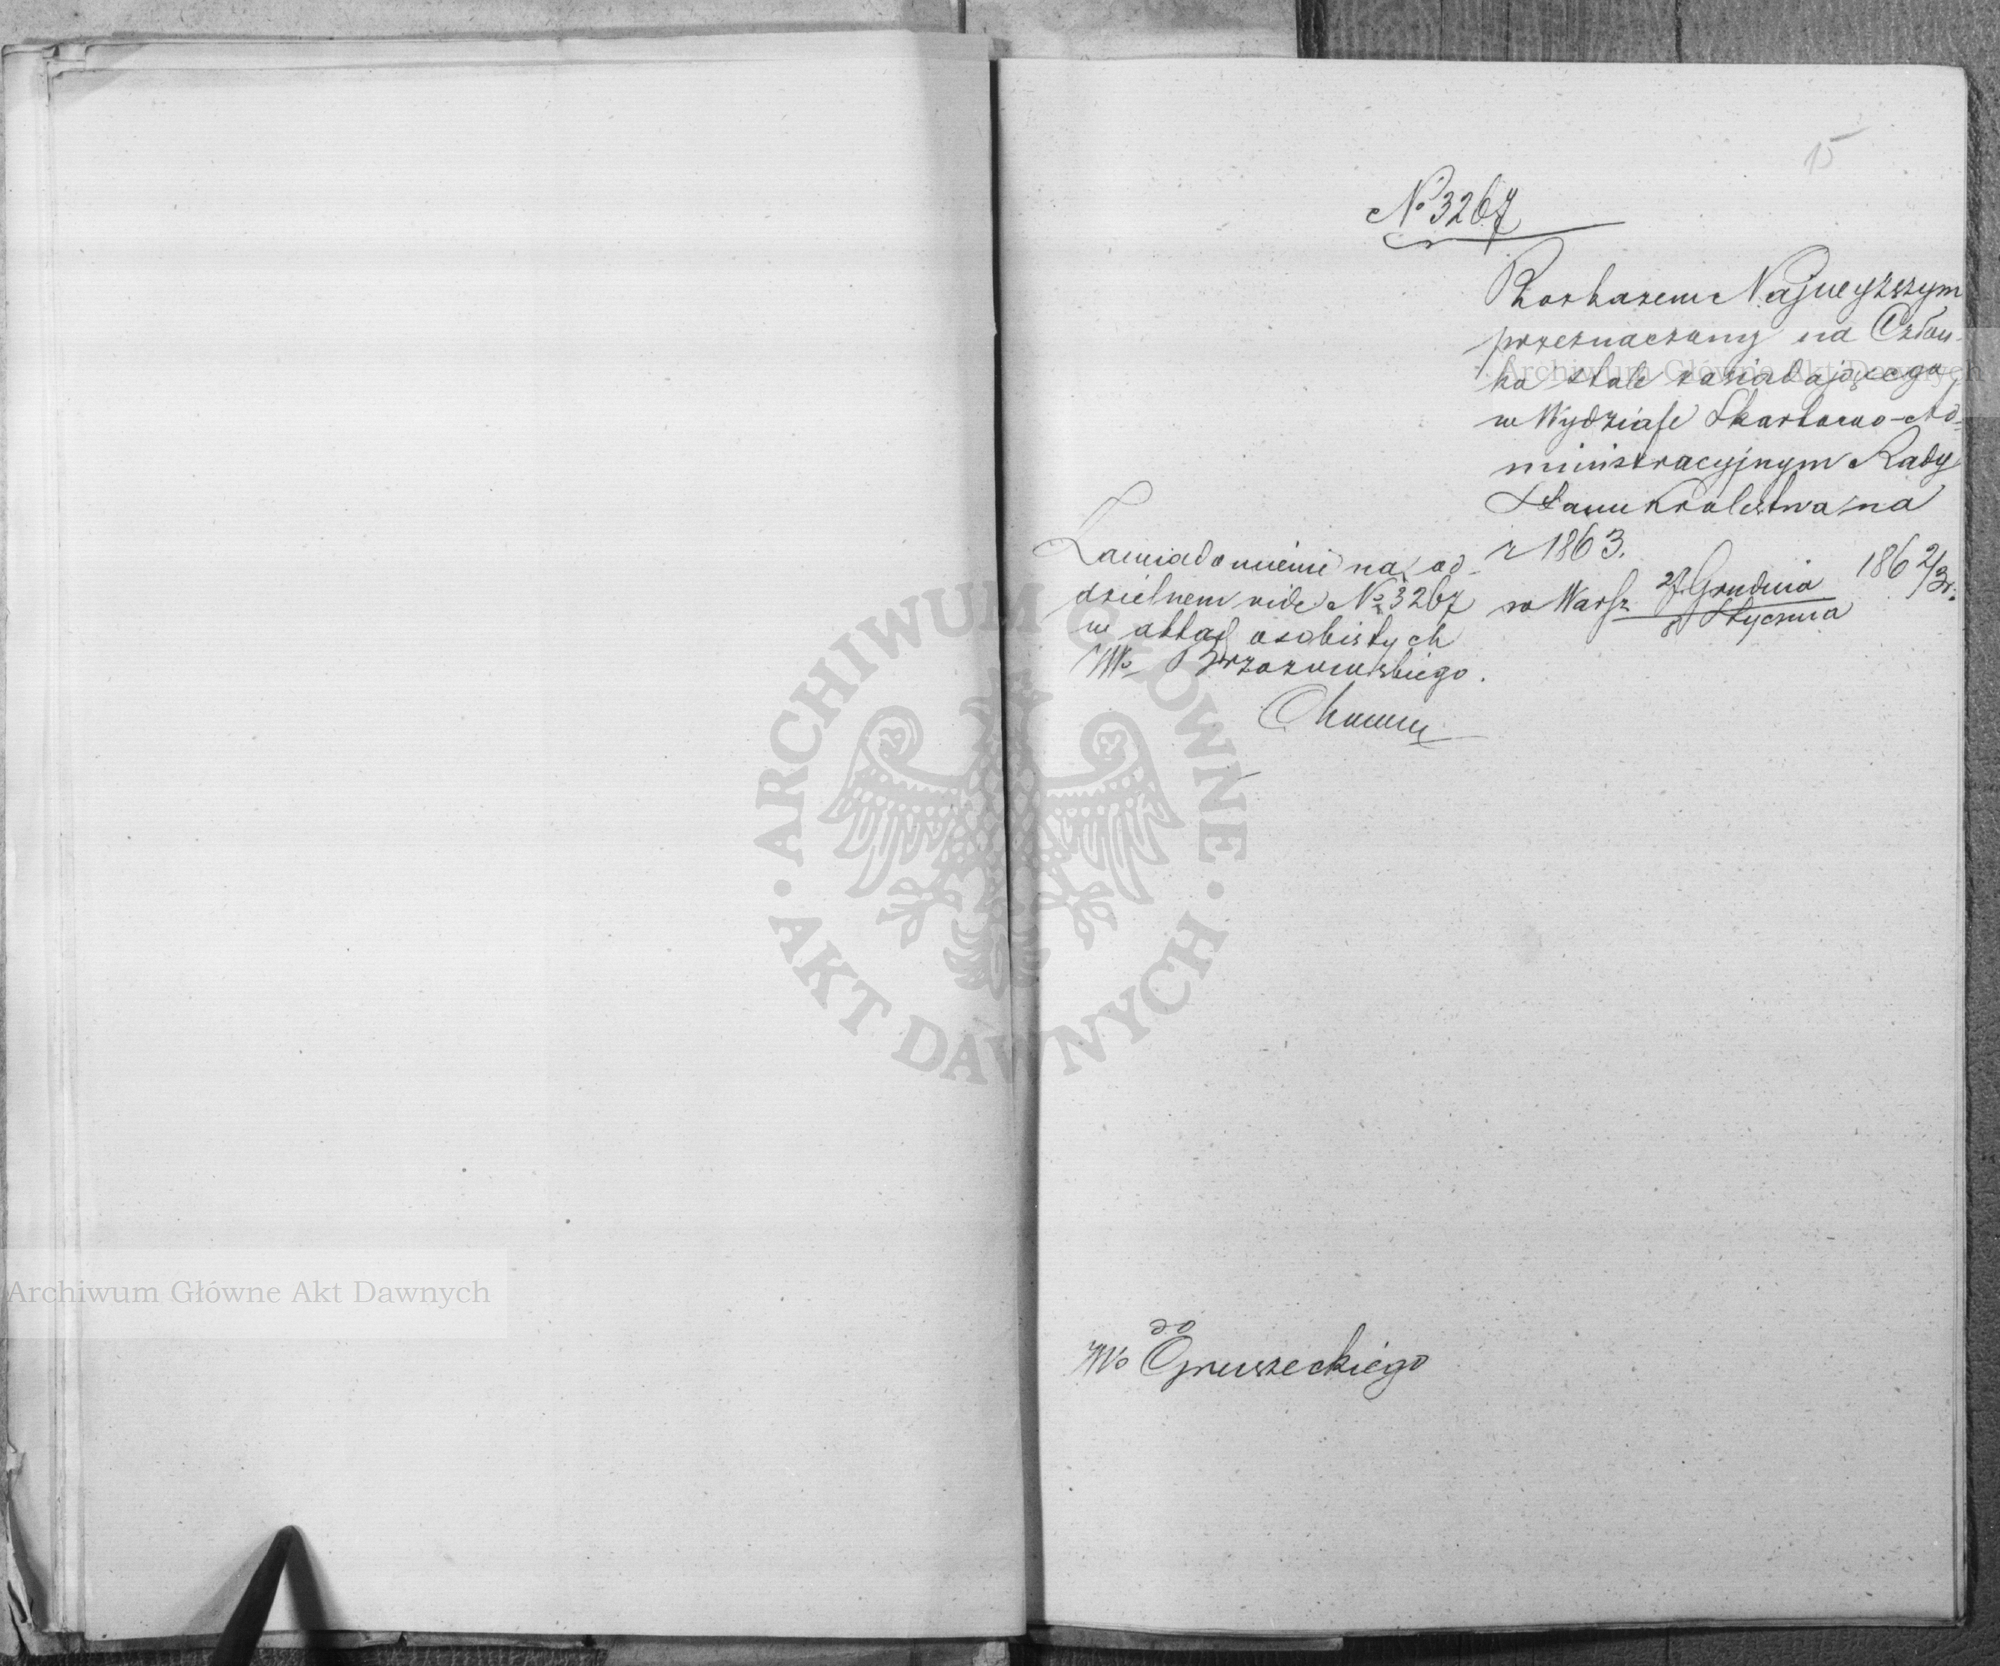 15
No 3267
Rozkazem Najwyższym
przeznaczony na Człon-
ka stale zasiadającego
w Wydziale Skarbowo-Ad-
ministracyjnym Rady
Stanu Królestwa na
r 1863.
w Warsz 27 Grudnia 1862/3 r.
8 Stycznia
Zawiadomienie na od-
dzielnem vide No 3267
w aktach osobistych
Wo Brzozowskiego.
do
JWo Gruszeckiego
ARCHIWUM GŁÓWNE
AKT DAWNYCH
Archiwum Główne Akt Dawnych
Archiwum Główne Akt Dawnych